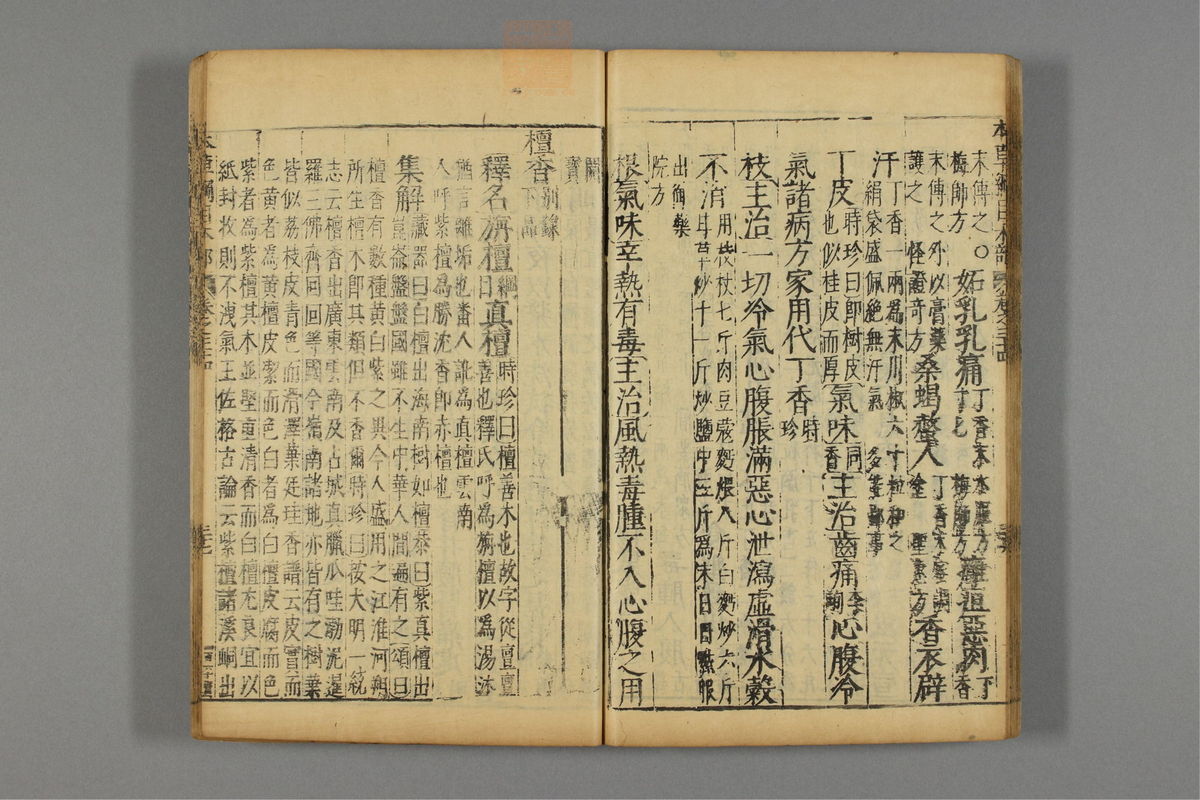 本草綱目木部 卷之三十四 三六
末傅之○梅師方 妬乳乳痛 丁香末水服方寸匕 梅師方 癰疽惡肉 丁香
末傅之外以膏藥護之 怪證奇方 桑蝎螫人 丁香末蜜調塗 聖惠方 香衣辟
汗 丁香一兩為末川椒六十粒和之絹袋盛佩絕無汗氣 多能鄙事
丁皮 時珍曰即樹皮也似桂皮而厚 氣味 同香 主治齒痛 李珣 心腹冷
氣諸病方家用代丁香 時珍
枝主治一切冷氣心腹脹滿惡心泄瀉虛滑水穀
不消 用枝杖七斤肉豆蔻麪煨八斤白麪炒六斤
甘草炒十一斤炒鹽中三斤為末日日點服
出御藥
院方
根氣味辛熱有毒主治風熱毒腫不入心腹之用
開
寶
檀香 別錄下品
釋名旃檀 綱目 真檀 時珍曰檀善木也故字從亶亶
善也釋氏呼為旃檀以為湯沐
猶言離垢也番人訛為真檀雲南
人呼紫檀為勝沉香即赤檀也
集解 藏器曰白檀出海南樹如檀恭曰紫真檀出
崑崙盤盤國雖不生中華人間遍有之頌曰
檀香有數種黃白紫之異今人盛用之江淮河朔
所生檀木即其類但不香爾時珍曰按大明一統
志云檀香出廣東雲南及占城真臘瓜哇渤泥暹
羅三佛齊回回等國今嶺南諸地亦皆有之樹葉
皆似荔枝皮青色而滑澤葉廷珪香譜云皮實而
色黃者為黃檀皮潔而色白者為白檀皮腐而色
紫者為紫檀其木並堅重清香而白檀尤良宜以
紙封收則不洩氣王佐格古論云紫檀諸溪峒出
本草綱目木部 卷之三十四 三七